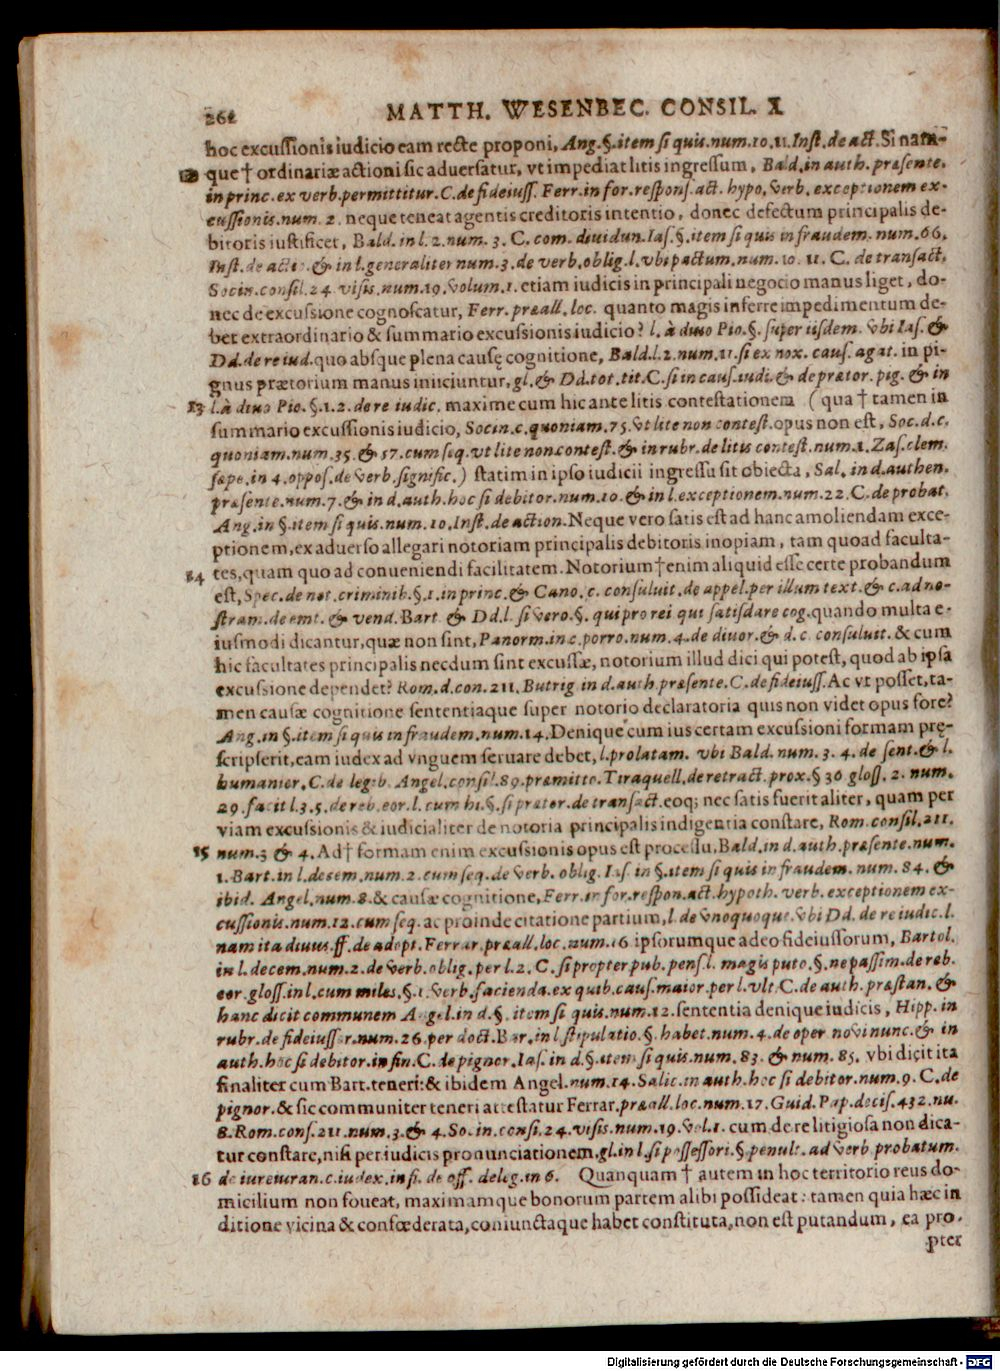 262 MATTH. WESENBEC. CONSIL. X
hoc excussionis iudicio eam recte proponi, Ang. §. item si quis. num. 10. 11. Inst. de act. Si nam-
12 que † ordinariæ actioni sic aduersatur, vt impediat litis ingressum, Bald. in auth. præsente.
in princ. ex verb. permittitur. C. de fideiuss. Ferr. in for. respons. act. hypo. verb. exceptionem ex-
cussionis. num. 2. neque teneat agentis creditoris intentio, donec defectum principalis de-
bitoris iustificet, Bald. in l. 2. num. 3. C. com. diuidun. Ias. §. item si quis in fraudem. num. 66.
Inst. de actio. & in l. generaliter num. 3. de verb. oblig. l. vbi pactum. num. 10. 11. C. de transact.
Socin. consil. 24. visis. num. 19. volum. 1. etiam iudicis in principali negocio manus liget, do-
nec de excussione cognoscatur, Ferr. præall. loc. quanto magis inferre impedimentum de-
bet extraordinario & summario excussionis iudicio? l. à diuo Pio. §. super iisdem. vbi Ias. &
Dd. de re iud. quo absque plena causę cognitione, Bald. l. 2. num. 11. si ex nox. caus. agat. in pi-
gnus prætorium manus iniiciuntur, gl. & Dd. tot. tit. C. si in caus. iudi. & de prætor. pig. & in
13 l. à diuo Pio. §. 1. 2. de re iudic. maxime cum hic ante litis contestationem (qua † tamen in
summario excussionis iudicio, Socin. c. quoniam. 75. vt lite non contest. opus non est, Soc. d. c.
quoniam. num. 35. & 57. cum seq. vt lite non contest. & in rubr. de litis contest. num. 1. Zas. clem.
sæpe. in 4. oppos. de verb. signific.) statim in ipso iudicii ingressu sit obiecta, Sal. in d. authen.
præsente. num. 7. & in d. auth. hoc si debitor. num. 10. & in l. exceptionem. num. 22. C. de probat.
Ang. in §. item si quis. num. 10. Inst. de action. Neque vero satis est ad hanc amoliendam exce-
ptionem, ex aduerso allegari notoriam principalis debitoris inopiam, tam quoad faculta-
14 tes, quam quo ad conueniendi facilitatem. Notorium † enim aliquid esse certe probandum
est, Spec. de not. criminib. §. 1. in princ. & Cano. c. consuluit. de appel. per illum text. & c. ad no-
stram. de emt. & vend. Bart. & Dd. l. si vero. §. qui pro rei qui satisdare cog. quando multa e-
iusmodi dicantur, quæ non sint, Panorm. in c. porro. num. 4. de diuor. & d. c. consuluit. & cum
hic facultates principalis necdum sint excussæ, notorium illud dici qui potest, quod ab ipsa
excussione dependet? Rom. d. con. 211. Butrig. in d. auth. præsente. C. de fideiuss. Ac vt posset, ta-
men causæ cognitione sententiaque super notorio declaratoria quis non videt opus fore?
Ang. in §. item si quis in fraudem. num. 14. Denique cum ius certam excussioni formam pręs-
scripserit, eam iudex ad vnguem seruare debet, l. prolatam. vbi Bald. num. 3. 4. de sent. & l.
humanier. C. de legib. Angel. consil. 89. præmitto. Tiraquell. de retract. prox. § 36 gloss. 2. num.
29. facit l. 3. 5. de reb. eor. l. cum hi. §. si prætor. de transact. eoq; nec satis fuerit aliter, quam per
viam excussionis & iudicialiter de notoria principalis indigentia constare, Rom. consil. 211.
15 num. 3 & 4. Ad † formam enim excussionis opus est processu, Bald. in d. auth. præsente. num.
1. Bart. in l. decem. num. 2. cum seq. de verb. oblig. Ias. in §. item si quis in fraudem. num. 84. &
ibid. Angel. num. 8. & causæ cognitione, Ferr. in for. respon. act. hypoth. verb. exceptionem ex-
cussionis. num. 12. cum seq. ac proinde citatione partium, l. de vnoquoque. vbi Dd. de re iudic. l.
nam ita diuus. ff. de adopt. Ferrar. præall. loc. num. 16 ipsorumque adeo fideiussorum, Bartol.
in l. decem. num. 2. de verb. oblig. per l. 2. C. si propter pub. pens. l. magis puto. §. ne passim. de reb.
eor. gloss. in l. cum miles. §. 1. verb. facienda. ex quib. caus. maior. per l. vlt. C. de auth. præstan. &
hanc dicit communem Angel. in d. §. item si quis. num. 12. sententia denique iudicis, Hipp. in
rubr. de fideiussor. num. 26. per doct. Bar. in l. stipulatio. §. habet. num. 4. de oper novi nunc. & in
auth. hoc si debitor. in fin. C. de pignor. Ias. in d. §. item si quis. num. 83. & num. 85. vbi dicit ita
finaliter cum Bart. teneri: & ibidem Angel. num. 14. Salic. in auth. hoc si debitor. num. 9. C. de
pignor. & sic communiter teneri attestatur Ferrar. præall. loc. num. 17. Guid. Pap. decis. 432. nu.
8. Rom. cons. 211. num. 3. & 4. Socin. consi. 24. visis. num. 19. vol. 1. cum de re litigiosa non dica-
tur constare, nisi per iudicis pronunciationem, gl. in l. si possessori. §. penult. ad verb. probatum.
16 de iureiuran. c. iudex. in fi. de off. deleg. in 6. Quanquam † autem in hoc territorio reus do-
micilium non foueat, maximamque bonorum partem alibi possideat: tamen quia hæc in
ditione vicina & confœderata, coniunctaque habet constituta, non est putandum, ea pro-
pter
Digitalisierung gefördert durch die Deutsche Forschungsgemeinschaft - DFG